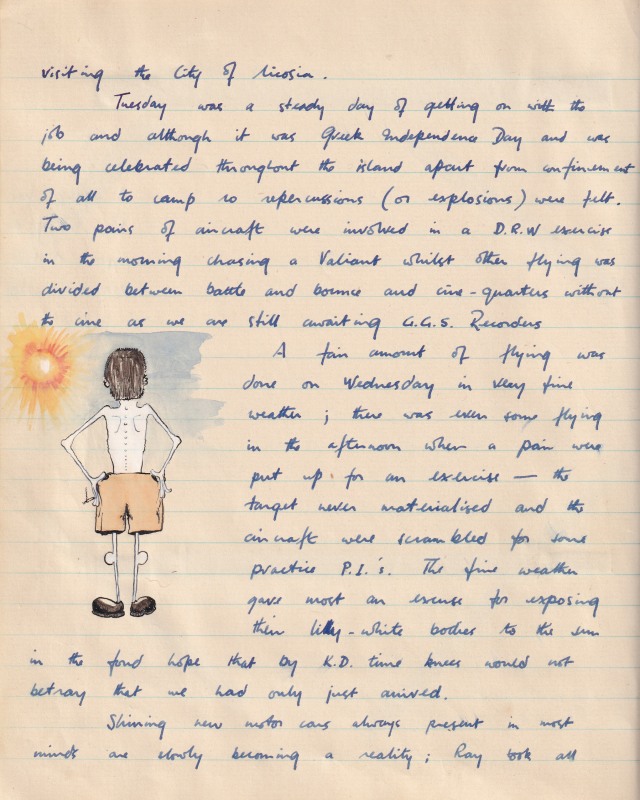 visiting the City of Nicosia.
Tuesday was a steady day of getting on with the
job and although it was Greek Independence Day and was
being celebrated throughout the island apart from confinement
of all to camp no repercussions (or explosions) were felt.
Two pairs of aircraft were involved in a D.R.W exercise
in the morning chasing a Valiant whilst other flying was
divided between battle and bounce and cine-quarters without
the cine as we are still awaiting G.G.S. Recorders
A fair amount of flying was
done on Wednesday in very fine
weather; there was even some flying
in the afternoon when a pair were
put up for an exercise — the
target never materialised and the
aircraft were scrambled for some
practice P.I.'s. The fine weather
gave most an excuse for exposing
their lilly-white bodies to the sun
in the fond hope that by K.D. time knees would not
betray that we had only just arrived.
Shining new motor cars always present in most
minds are slowly becoming a reality; Ray took all